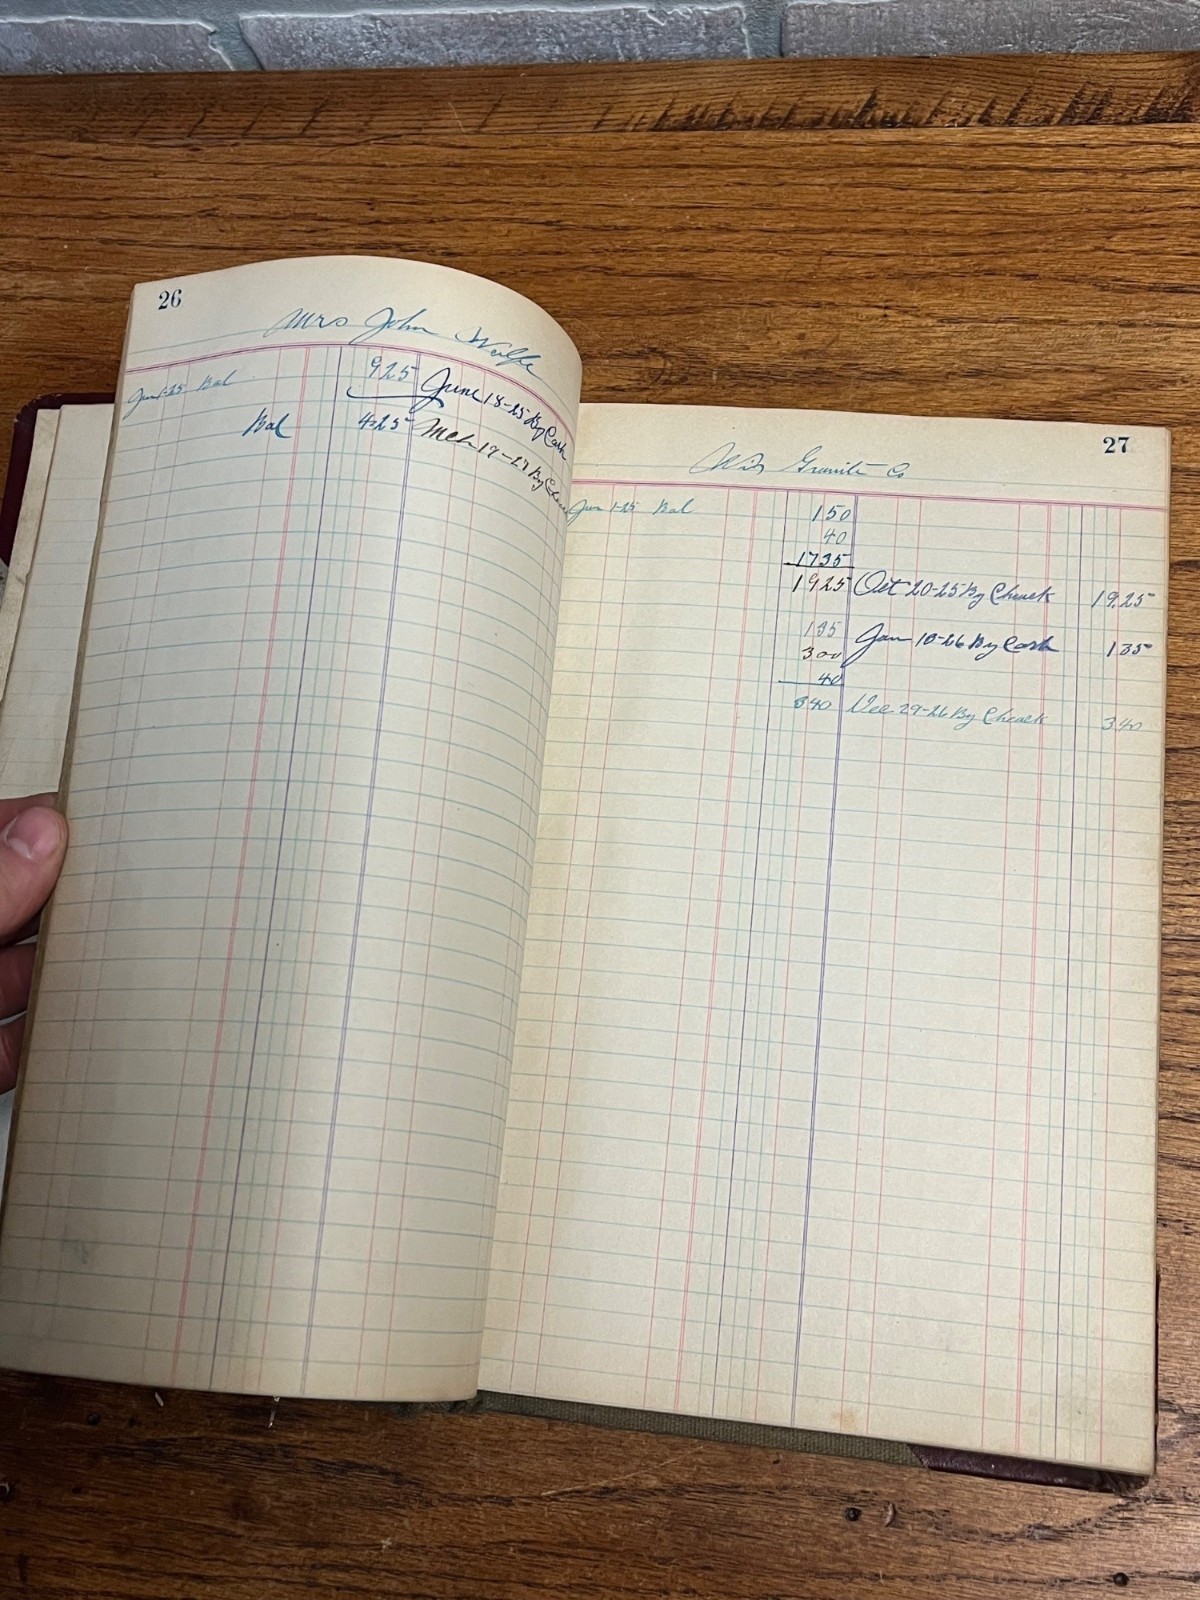 26
Mrs John Wolfe
Jan 1-25 Bal 925 June 18-25 By Cash
Bal 425 Mch 19-27 By
27
Wis Granite Co
Jan 1-25 Bal 150
40
1735
1925 Oct 20-25 By Check 19.25
135 Jan 18-26 By Cash 135
300
40
340 Dec 29-26 By Check 340